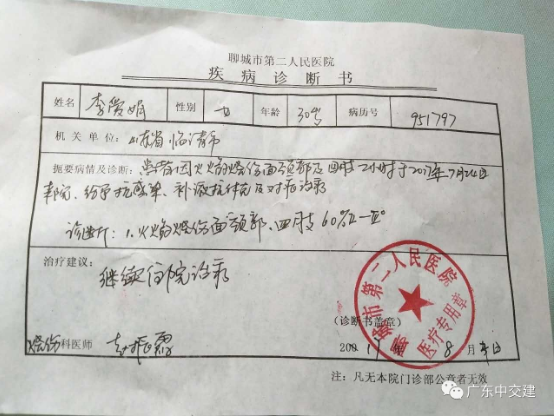 聊城市第二人民医院
疾病诊断书
姓名 李爱娟 性别 女 年龄 30岁 病历号 951797
机关单位：山东省临清市
扼要病情及诊断：患者因火焰烧伤面颈部及四肢2小时于2017年7月24日
来院，给予抗感染、补液抗休克及对症治疗
诊断：1.火焰烧伤面颈部、四肢60%II-III°
治疗建议：
继续住院治疗
聊城市第二人民医院
医疗专用章
（诊断书盖章）
烧伤科医师
2017年8月 日
注：凡无本院门诊部公章者无效
广东中交建